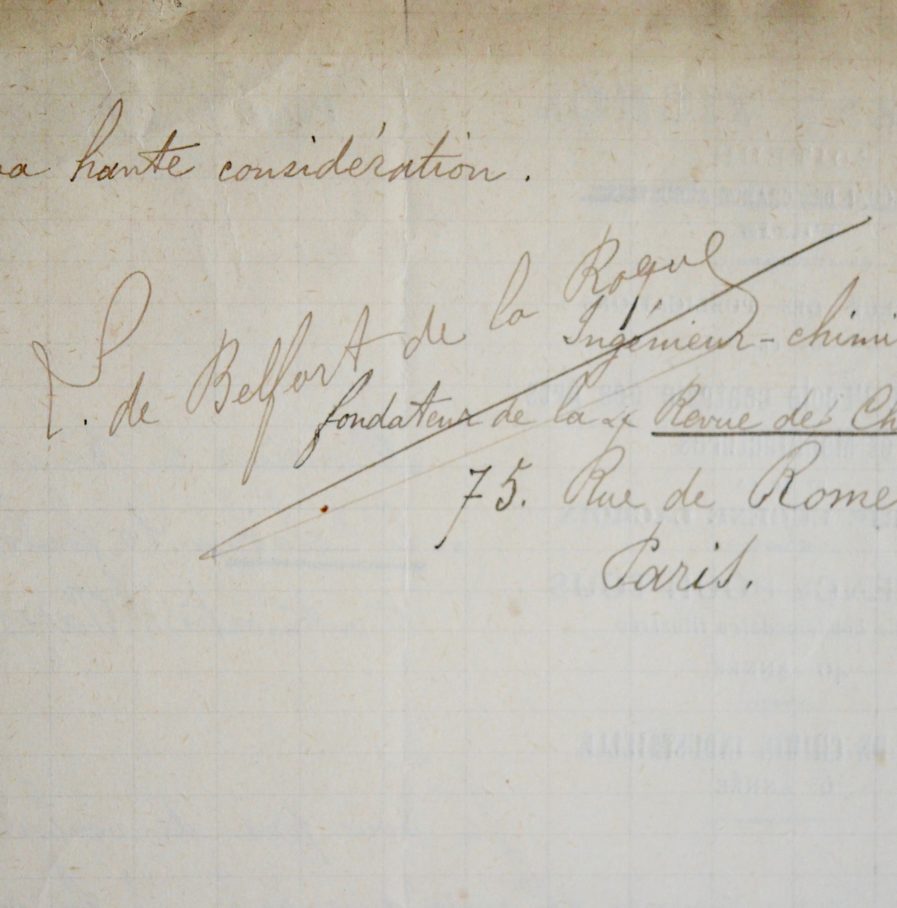 haute considération.
L. de Belfort de la Roque
Ingénieur-chimi
fondateur de la Revue de Ch
75. Rue de Rome
Paris.